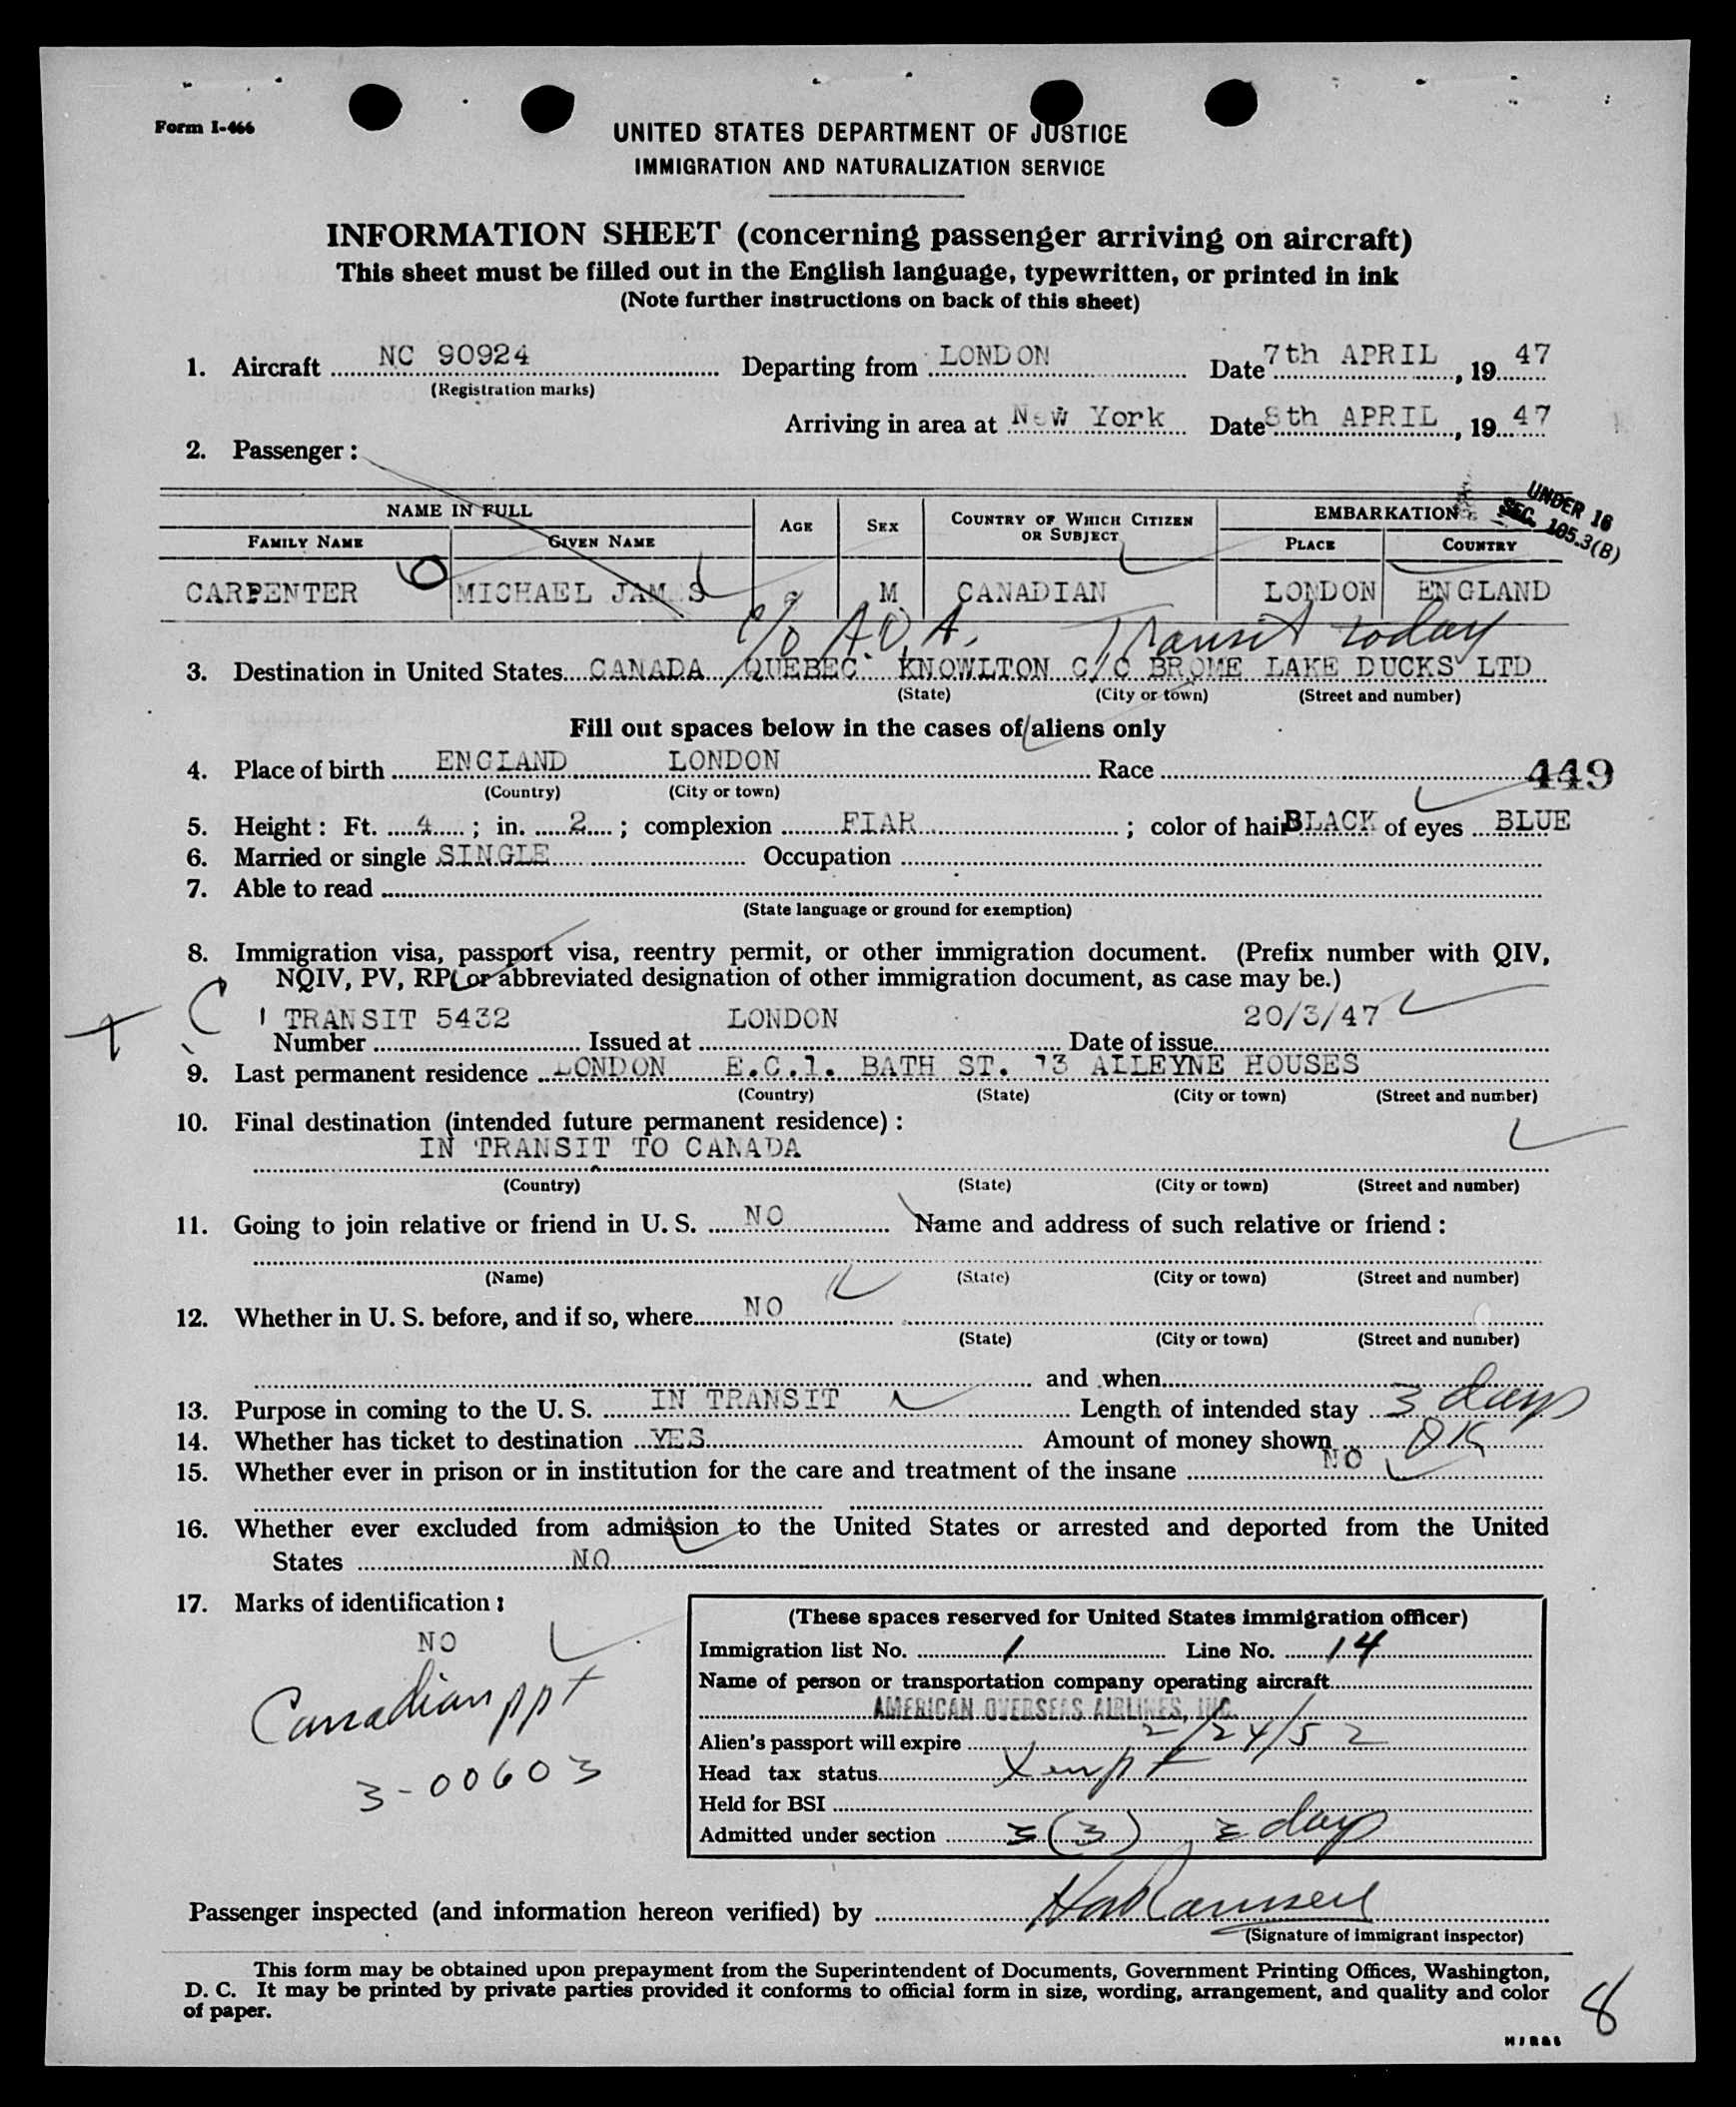 Form I-466
UNITED STATES DEPARTMENT OF JUSTICE
IMMIGRATION AND NATURALIZATION SERVICE
INFORMATION SHEET (concerning passenger arriving on aircraft)
This sheet must be filled out in the English language, typewritten, or printed in ink
(Note further instructions on back of this sheet)
1. Aircraft NC 90924 Departing from LONDON Date 7th APRIL, 19 47
(Registration marks)
Arriving in area at New York Date 8th APRIL, 19 47
2. Passenger:
UNDER 16
SEC. 105.3(B)
NAME IN FULL AGE SEX COUNTRY OF WHICH CITIZEN OR SUBJECT EMBARKATION
FAMILY NAME GIVEN NAME PLACE COUNTRY
CARPENTER 6 MICHAEL JAM S M CANADIAN LONDON ENGLAND
c/o A.O.A. Transit today
3. Destination in United States CANADA QUEBEC KNOWLTON C/C BROME LAKE DUCKS LTD
(State) (City or town) (Street and number)
Fill out spaces below in the cases of aliens only
4. Place of birth ENGLAND LONDON Race 449
(Country) (City or town)
5. Height: Ft. 4; in. 2; complexion FIAR; color of hair BLACK of eyes BLUE
6. Married or single SINGLE Occupation
7. Able to read
(State language or ground for exemption)
8. Immigration visa, passport visa, reentry permit, or other immigration document. (Prefix number with QIV,
NQIV, PV, RP, or abbreviated designation of other immigration document, as case may be.)
TRANSIT 5432 LONDON 20/3/47
Number Issued at Date of issue
9. Last permanent residence LONDON E.C.1. BATH ST. 73 ALLEYNE HOUSES
(Country) (State) (City or town) (Street and number)
10. Final destination (intended future permanent residence):
IN TRANSIT TO CANADA
(Country) (State) (City or town) (Street and number)
11. Going to join relative or friend in U. S. NO Name and address of such relative or friend:
(Name) (State) (City or town) (Street and number)
12. Whether in U. S. before, and if so, where NO
(State) (City or town) (Street and number)
and when
13. Purpose in coming to the U. S. IN TRANSIT Length of intended stay 3 days
14. Whether has ticket to destination YES Amount of money shown OK
15. Whether ever in prison or in institution for the care and treatment of the insane NO
16. Whether ever excluded from admission to the United States or arrested and deported from the United
States NO
17. Marks of identification:
NO
Canadian ppt
3-00603
(These spaces reserved for United States immigration officer)
Immigration list No. 1 Line No. 14
Name of person or transportation company operating aircraft
AMERICAN OVERSEAS AIRLINES, INC.
Alien's passport will expire 2/24/52
Head tax status Xempt
Held for BSI
Admitted under section 3(3) 3 days
Passenger inspected (and information hereon verified) by
(Signature of immigrant inspector)
This form may be obtained upon prepayment from the Superintendent of Documents, Government Printing Offices, Washington,
D. C. It may be printed by private parties provided it conforms to official form in size, wording, arrangement, and quality and color
of paper.
8